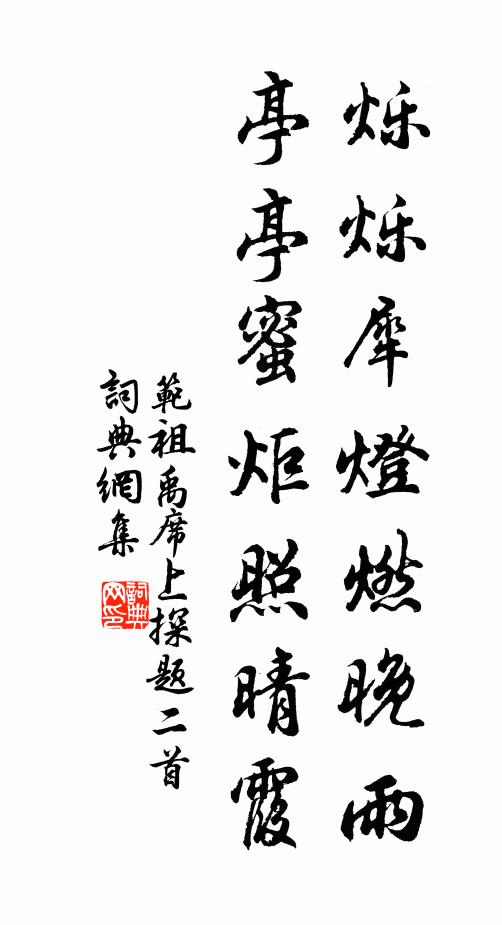 烁烁犀燈燃晚雨
亭亭蜜炬照晴霞
範祖禹席上探题二首
詞典網集
詞典网印